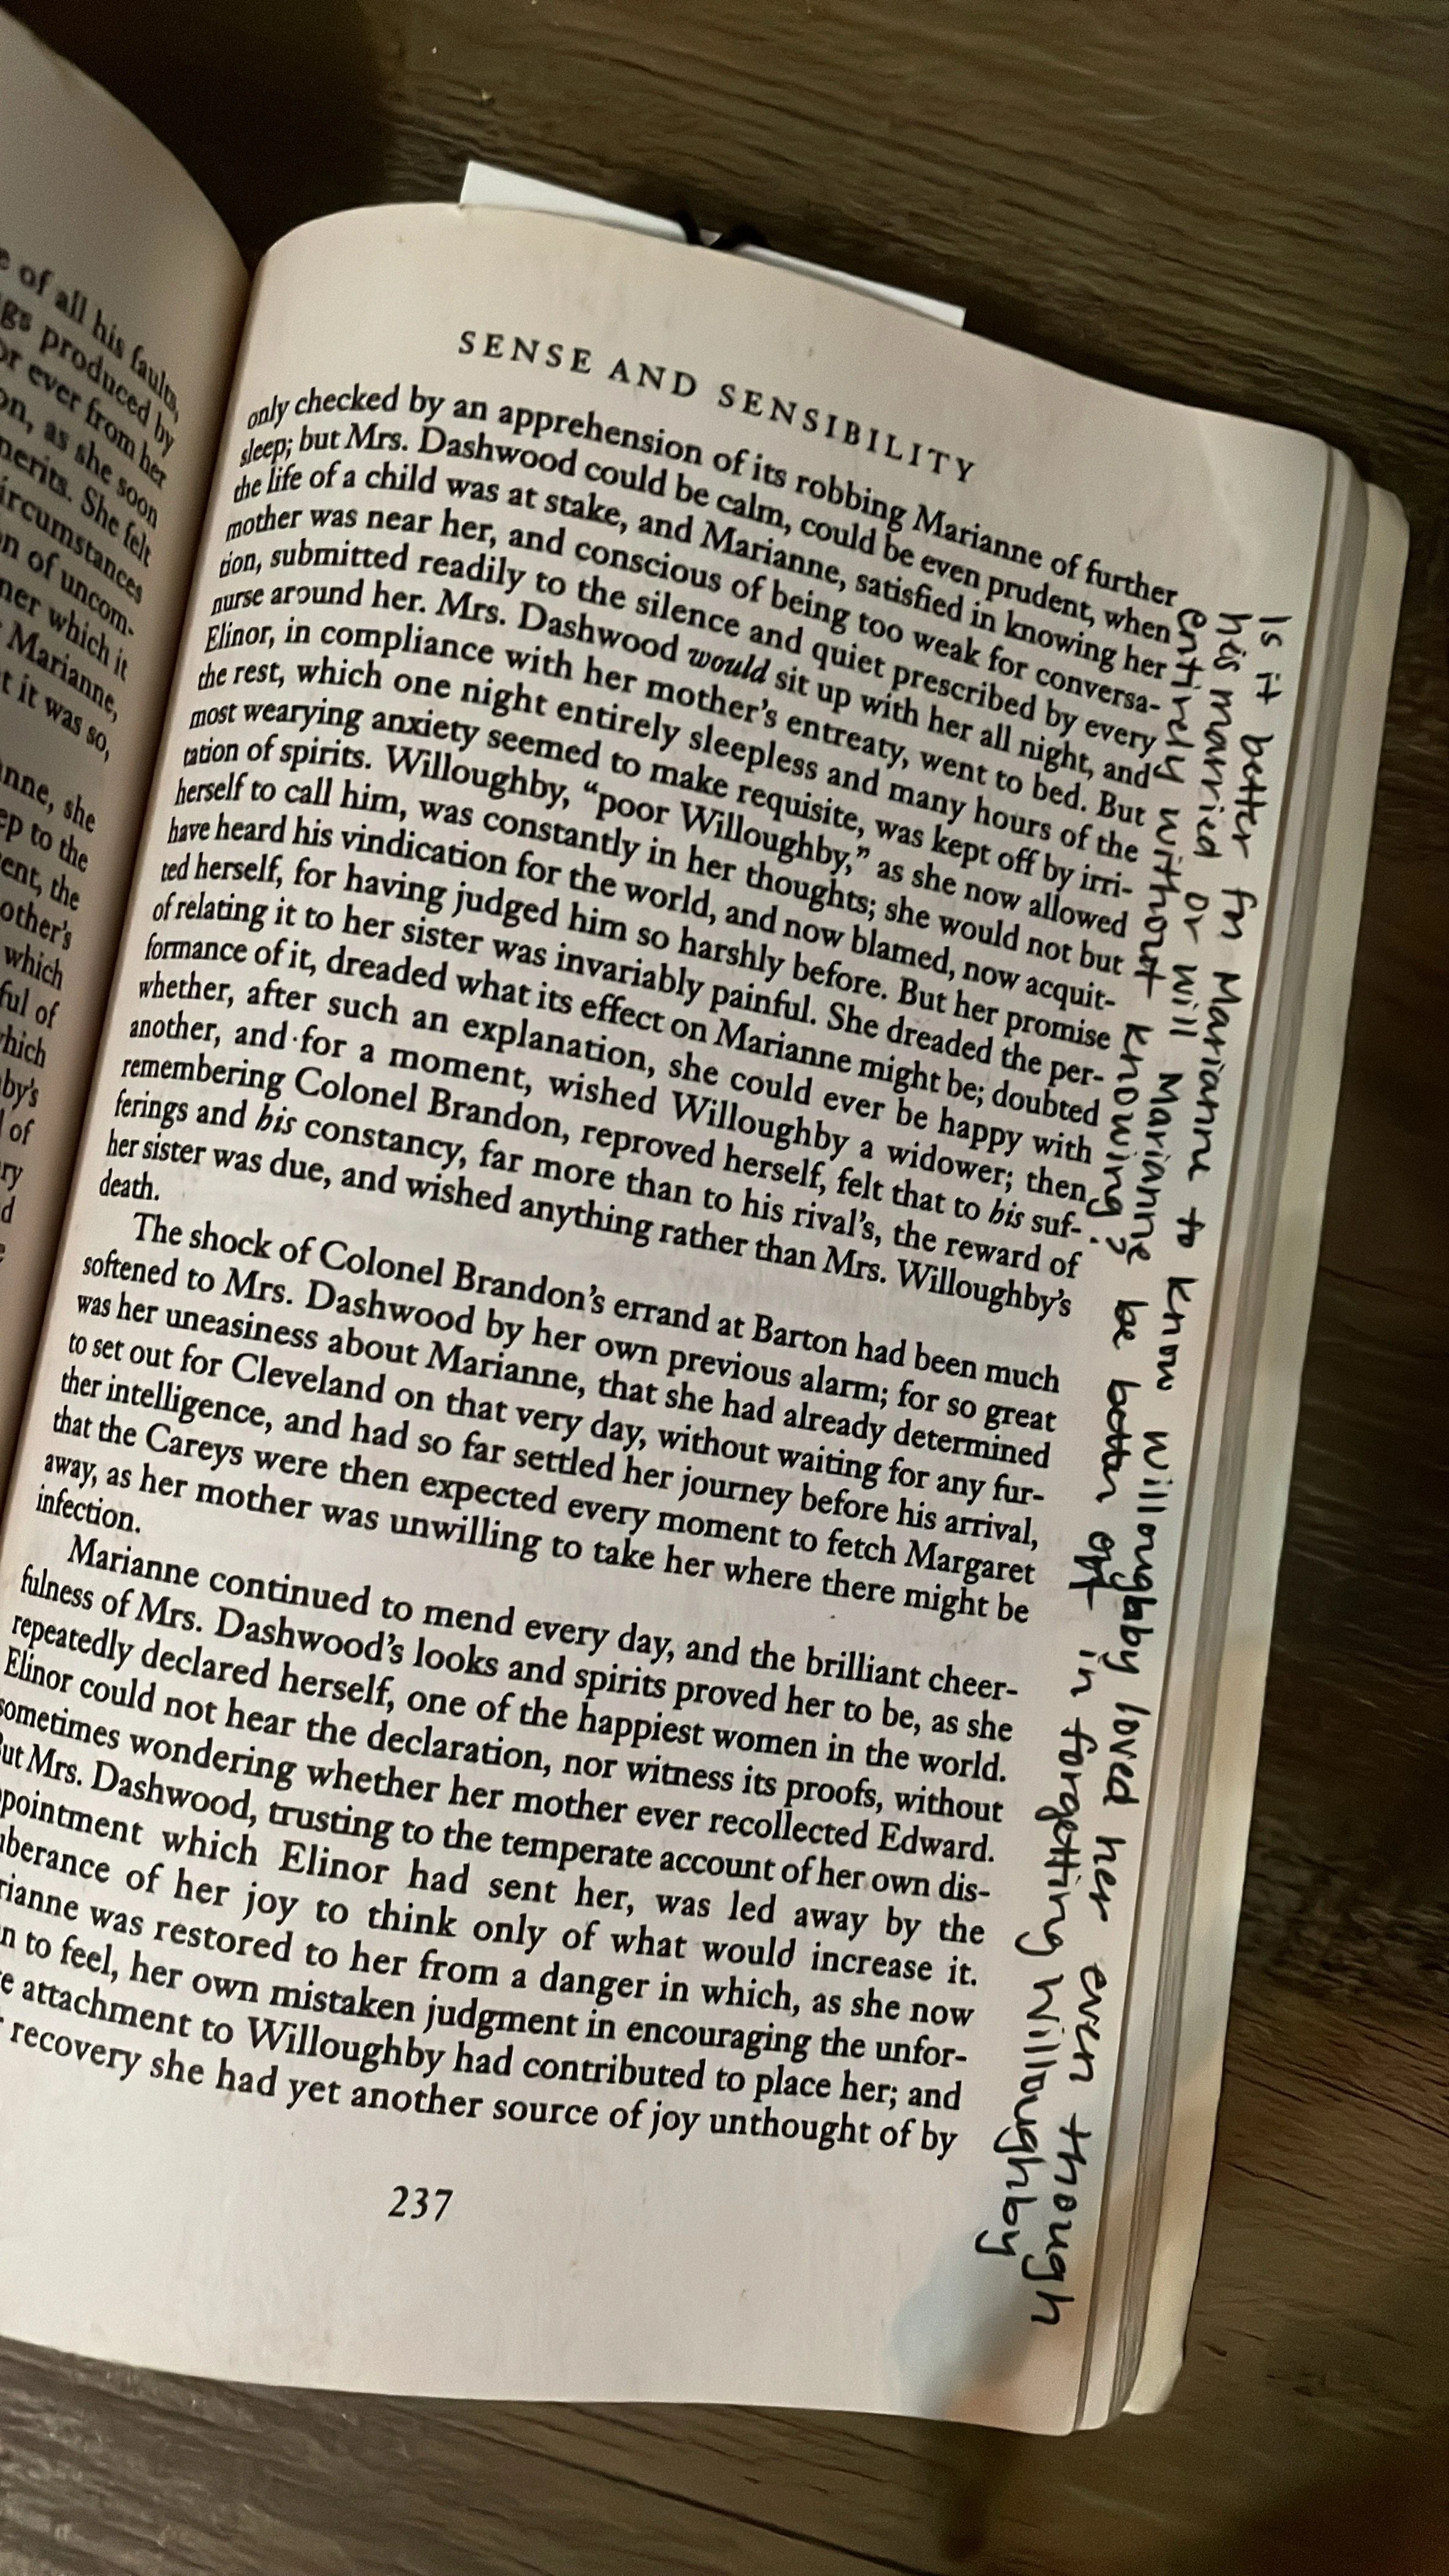 e of all his faults,
gs produced by
or ever from her
on, as she soon
merits. She felt
ircumstances
n of uncom-
ner which it
Marianne,
t it was so,
anne, she
ep to the
ent, the
other's
which
ful of
which
by's
of
ry
d
SENSE AND SENSIBILITY
only checked by an apprehension of its robbing Marianne of further
sleep; but Mrs. Dashwood could be calm, could be even prudent, when
the life of a child was at stake, and Marianne, satisfied in knowing her
mother was near her, and conscious of being too weak for conversa-
tion, submitted readily to the silence and quiet prescribed by every
nurse around her. Mrs. Dashwood would sit up with her all night, and
Elinor, in compliance with her mother's entreaty, went to bed. But
the rest, which one night entirely sleepless and many hours of the
most wearying anxiety seemed to make requisite, was kept off by irri-
tation of spirits. Willoughby, “poor Willoughby,” as she now allowed
herself to call him, was constantly in her thoughts; she would not but
have heard his vindication for the world, and now blamed, now acquit-
ted herself, for having judged him so harshly before. But her promise
of relating it to her sister was invariably painful. She dreaded the per-
formance of it, dreaded what its effect on Marianne might be; doubted
whether, after such an explanation, she could ever be happy with
another, and for a moment, wished Willoughby a widower; then,
remembering Colonel Brandon, reproved herself, felt that to his suf-
ferings and his constancy, far more than to his rival's, the reward of
her sister was due, and wished anything rather than Mrs. Willoughby's
death.
The shock of Colonel Brandon's errand at Barton had been much
softened to Mrs. Dashwood by her own previous alarm; for so great
was her uneasiness about Marianne, that she had already determined
to set out for Cleveland on that very day, without waiting for any fur-
ther intelligence, and had so far settled her journey before his arrival,
that the Careys were then expected every moment to fetch Margaret
away, as her mother was unwilling to take her where there might be
infection.
Marianne continued to mend every day, and the brilliant cheer-
fulness of Mrs. Dashwood's looks and spirits proved her to be, as she
repeatedly declared herself, one of the happiest women in the world.
Elinor could not hear the declaration, nor witness its proofs, without
sometimes wondering whether her mother ever recollected Edward.
But Mrs. Dashwood, trusting to the temperate account of her own dis-
ppointment which Elinor had sent her, was led away by the
uberance of her joy to think only of what would increase it.
rianne was restored to her from a danger in which, as she now
n to feel, her own mistaken judgment in encouraging the unfor-
e attachment to Willoughby had contributed to place her; and
recovery she had yet another source of joy unthought of by
237
Is it better for Marianne to know Willoughby loved her even though
his married or will Marianne be better opt in forgetting Willoughby
entirely without knowing?